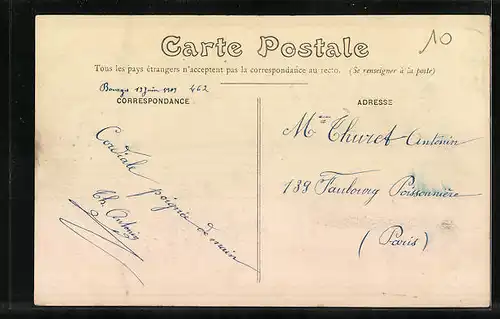 Carte Postale
10
Tous les pays étrangers n'acceptent pas la correspondance au recto. (Se renseigner à la poste)
Bourges 13 Juin 1909 462
CORRESPONDANCE
Cordiale poignée de main
Th. Antonin
ADRESSE
Mme Thuret Antonin
189 Faubourg Poissonnière
(Paris)